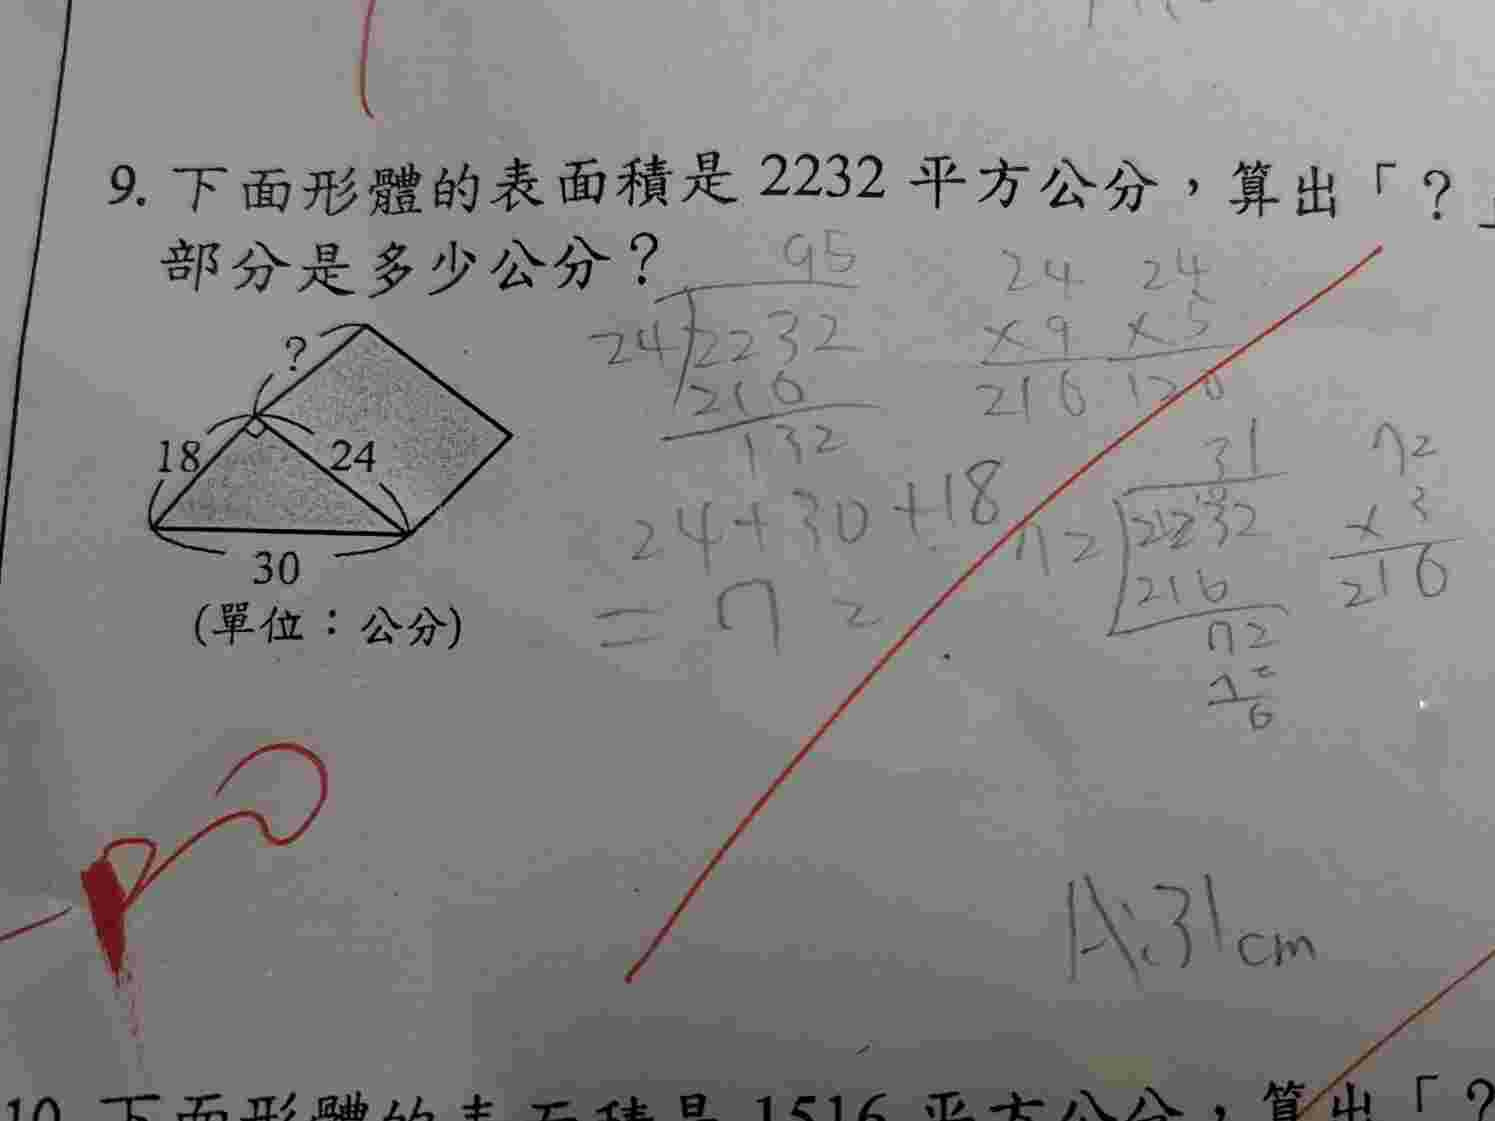 9. 下面形體的表面積是 2232 平方公分，算出「？」
部分是多少公分？
95
24 2232
216
132
24 24
×9 ×5
216 120
?
18 24
30
(單位：公分)
24+30+18
=72
31
72 2232
216
72
72
0
72
×3
216
A:31cm
10. 下面形體的表面積是 1516 平方公分，算出「？